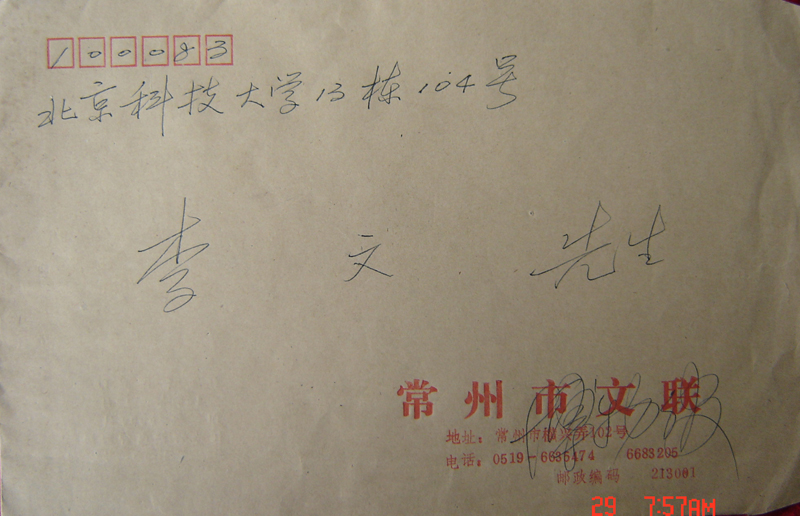 100083
北京科技大学13栋104号
李文先生
常州市文联
地址:常州市 兴弄102号
电话:0519-6635474 6683295
邮政编码 213001
29 7:57AM